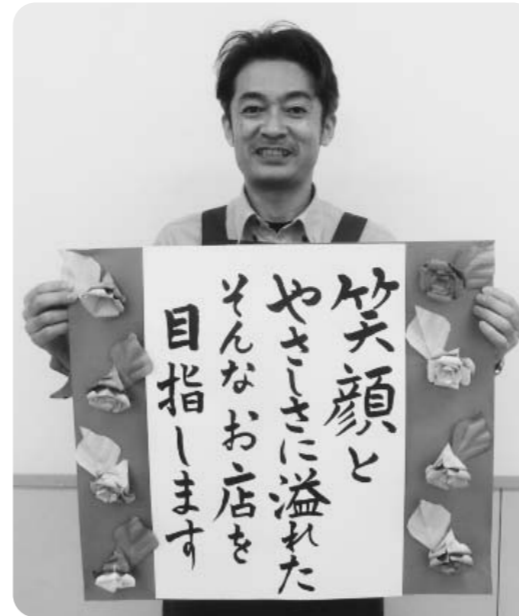 笑顔と
やさしさに溢れた
そんなお店を
目指します